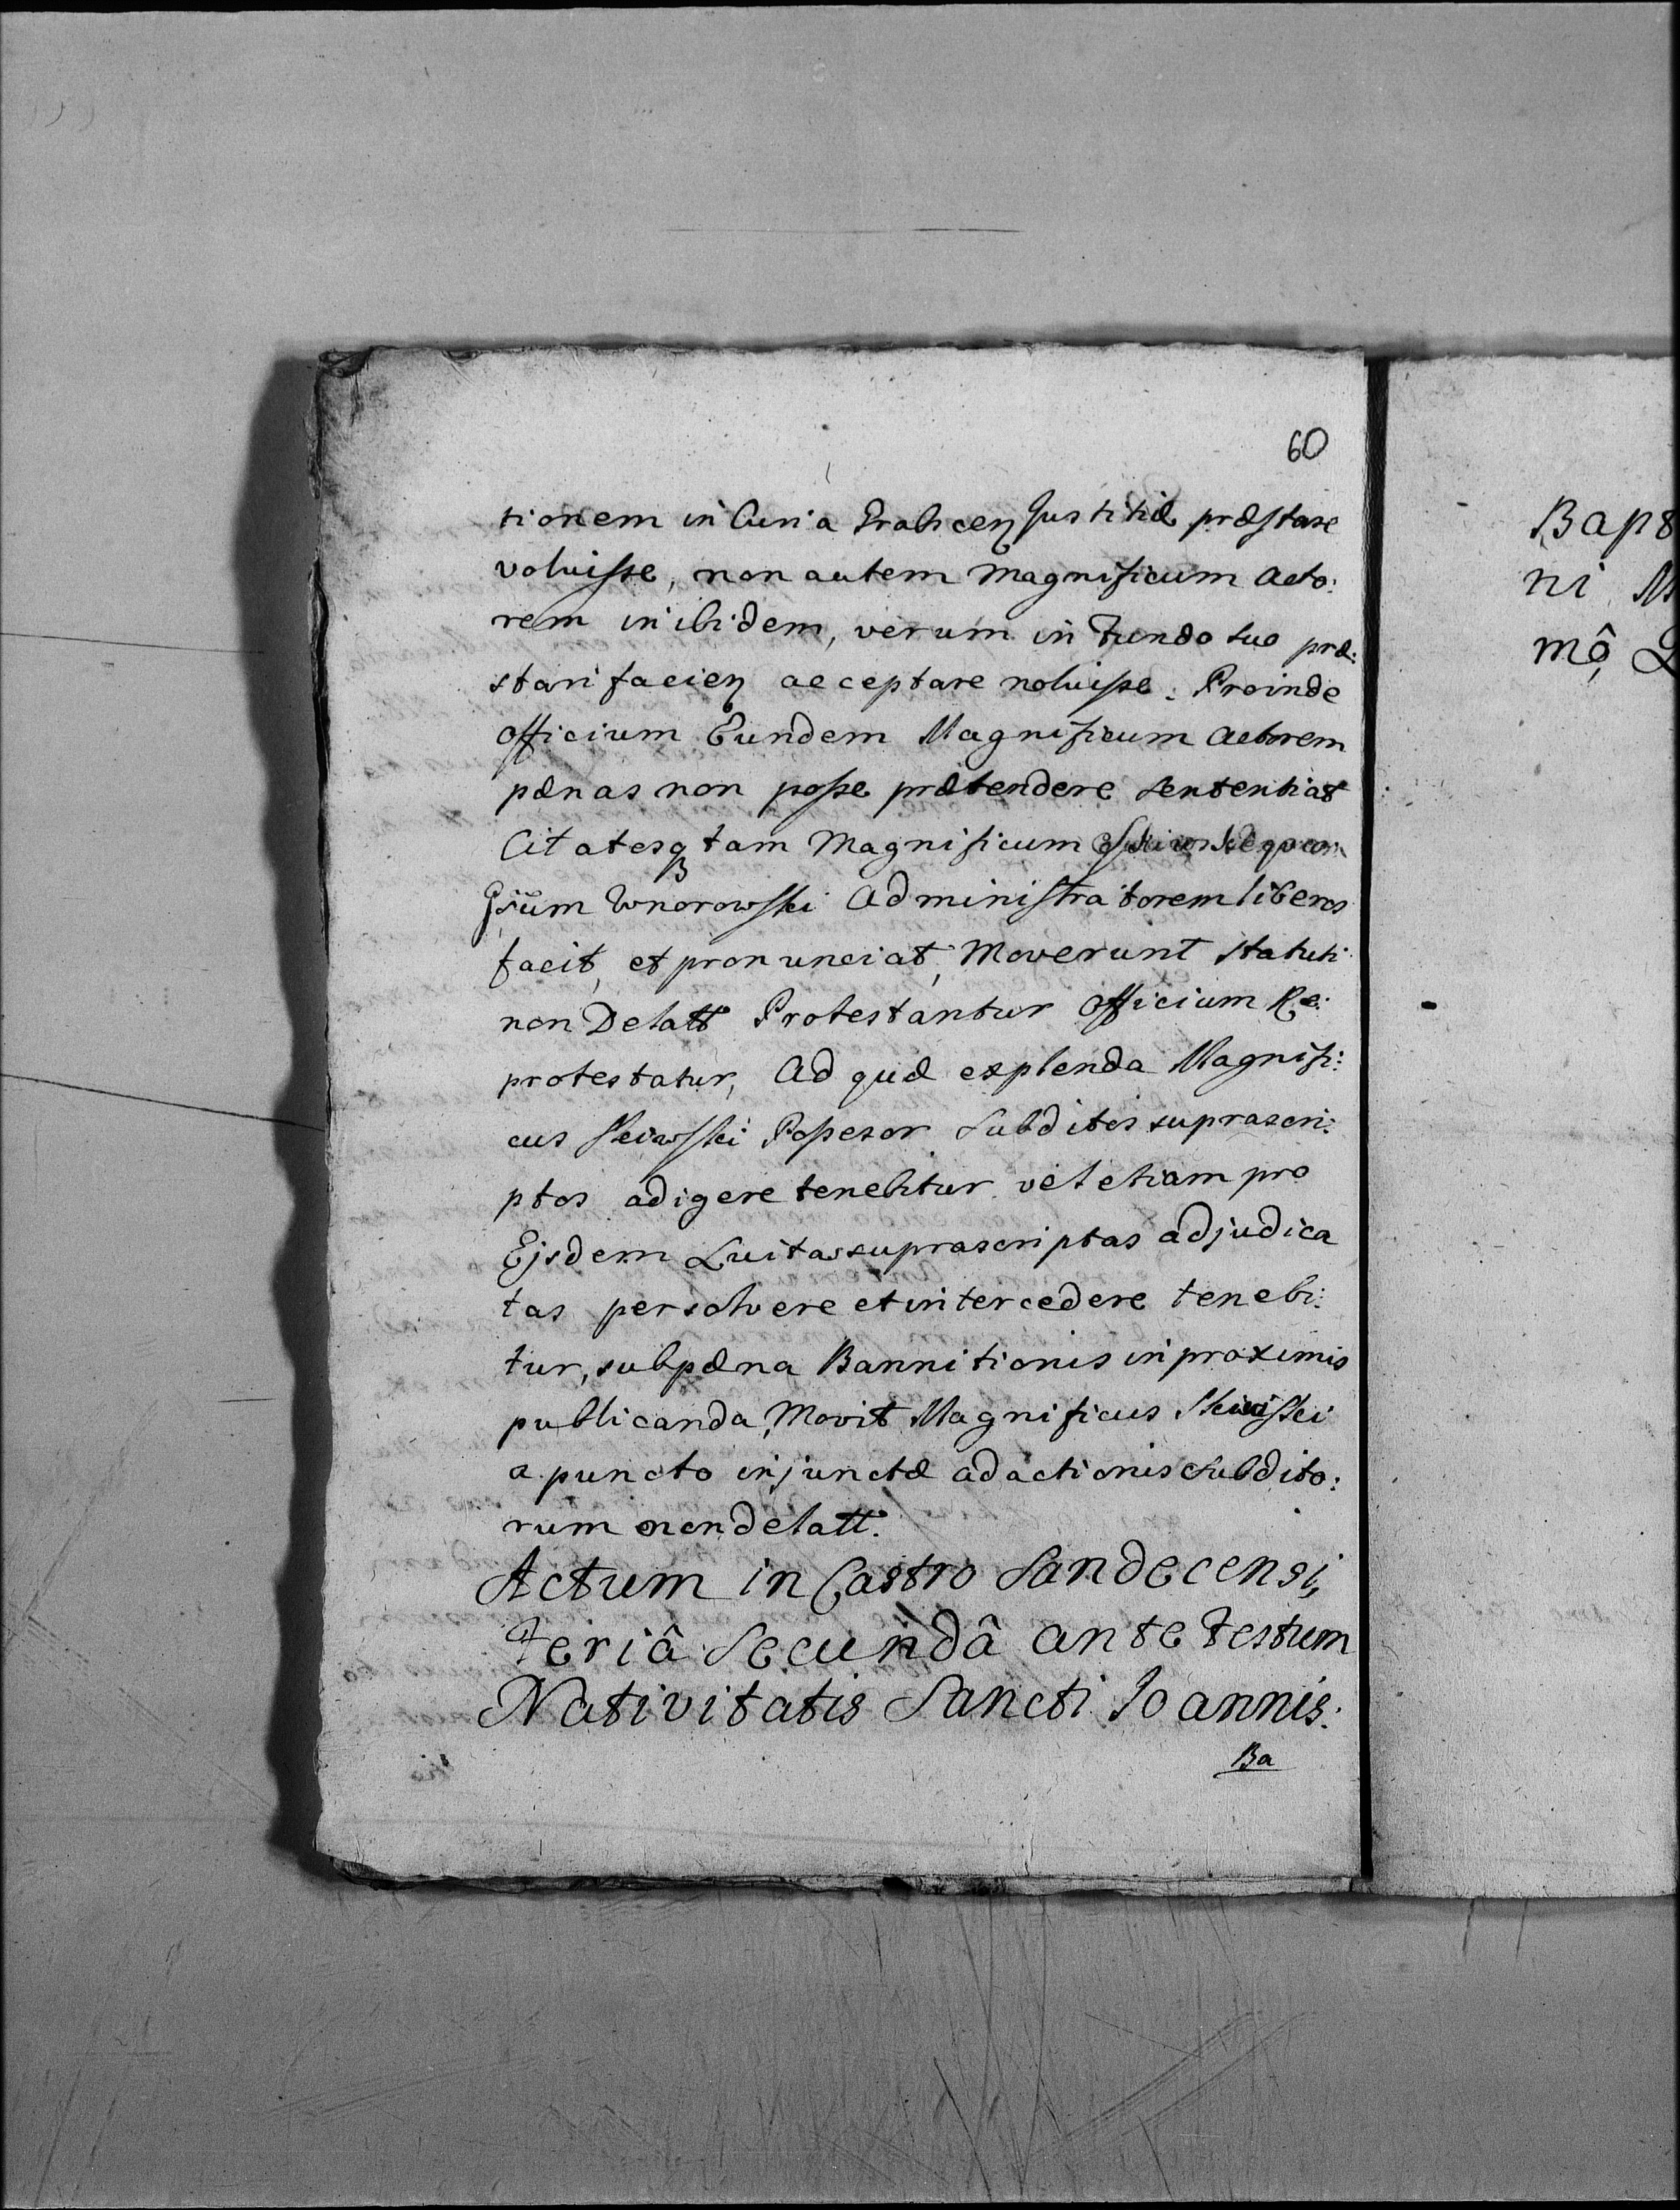 60
tionem in Curia Grabicen Justitiæ præstare
voluisse, non autem Magnificum Acto:
rem in ibidem, verum in Fundo suo præ:
stari facien acceptare noluisse. Proinde
Officium Eundem Magnificum Actorem
pænas non posse prætendere sententiat
Citatesq tam Magnificum
Gsum Wnorowski Administratorem liberos
facit, et pronunciat, Moverunt statuti
non Delatt Protestantur Officium Re:
protestatur, Ad quæ explenda Magnifi:
cus Skiwski Possesor Subditos suprascri:
ptos adigere tenebitur vel etiam pro
Ejsdem Luitas suprascriptas adjudica
tas persolvere et intercedere tenebi:
tur, sub pæna Bannitionis in proximis
publicanda, Movit Magnificus Skiwski
a puncto injunctæ adactionis Subdito:
rum non delatt.
Actum in Castro Sandecensi,
Feriâ Secundâ ante Festum
Nativitatis Sancti Joannis:
Ba
Bap
ni M
mô